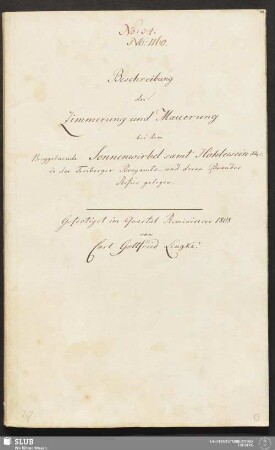 No: 54.
No: 1160.
Beschreibung
der
Zimmerung und Mauerung
bei dem
Berggebäude Sonnenwirbel samt Hohlewein
in der Freyberger Bergamts- und deren Brander
Refier gelegen.
Gefertiget im Quartal Reminiscere 1808
von
Carl Gottfried
SLUB
Wir führen Wissen.